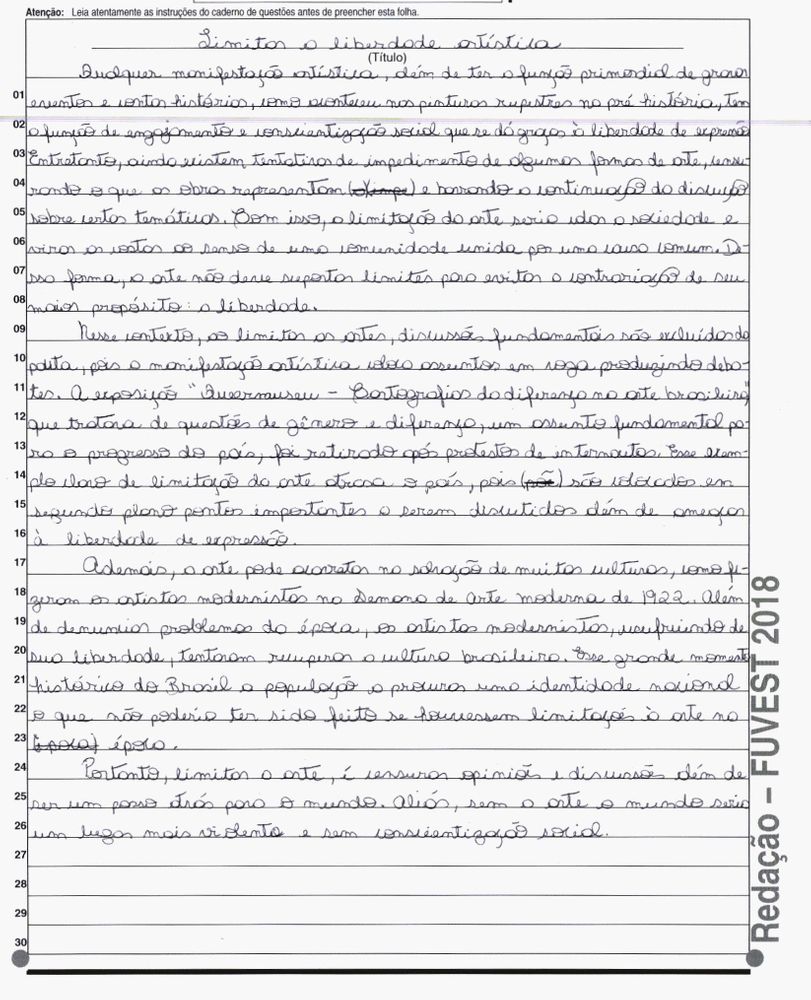 Atenção: Leia atentamente as instruções do caderno de questões antes de preencher esta folha.
Limitar a liberdade artística
(Título)
Qualquer manifestação artística, além de ter a função primordial de gravar
01 eventos e contar histórias, como aconteceu nas pinturas rupestres na pré história, tem
02 a função de engajamento e conscientização social que se dá graças à liberdade de expressão
03 Entretanto, ainda existem tentativas de impedimento de algumas formas de arte, censu-
04 rando o que as obras representam e barrando a continuação da discução
05 sobre certas temáticas. Com isso, a limitação da arte seria calar a sociedade e
06 virar as costas ao senso de uma comunidade unida por uma causa comum. De-
07 ssa forma, a arte não deve suportar limites para evitar a contrariação de seu
08 maior propósito: a liberdade.
09 Nesse contexto, ao limitar as artes, discussões fundamentais são excluídas da
10 pauta, pois a manifestação artística coloca assuntos em voga produzindo deba-
11 tes. A exposição "Queermuseu - Cartografias da diferença na arte brasileira"
12 que tratava de questões de gênero e diferença, um assunto fundamental pa-
13 ra o progresso do país, foi retirada após protestos de internautas. Esse exem-
14 plo claro de limitação da arte atrasa o país, pois são colocados em
15 segundo plano pontos importantes a serem discutidos além de ameaçar
16 à liberdade de expressão.
17 Ademais, a arte pode acarretar na salvação de muitas culturas, como fi-
18 zeram os artistas modernistas na Semana de Arte moderna de 1922. Além
19 de denunciar problemas da época, os artistas modernistas, usufruindo de
20 sua liberdade, tentaram recuperar a cultura brasileira. Esse grande momento
21 histórico do Brasil a população a procurar uma identidade nacional
22 o que não poderia ter sido feito se houvessem limitações à arte na
23 época.
24 Portanto, limitar a arte, é censurar opiniões e discussões além de
25 ser um passo atrás para o mundo. Aliás, sem a arte o mundo seria
26 um lugar mais violento e sem conscientização social.
27
28
29
30
Redação – FUVEST 2018